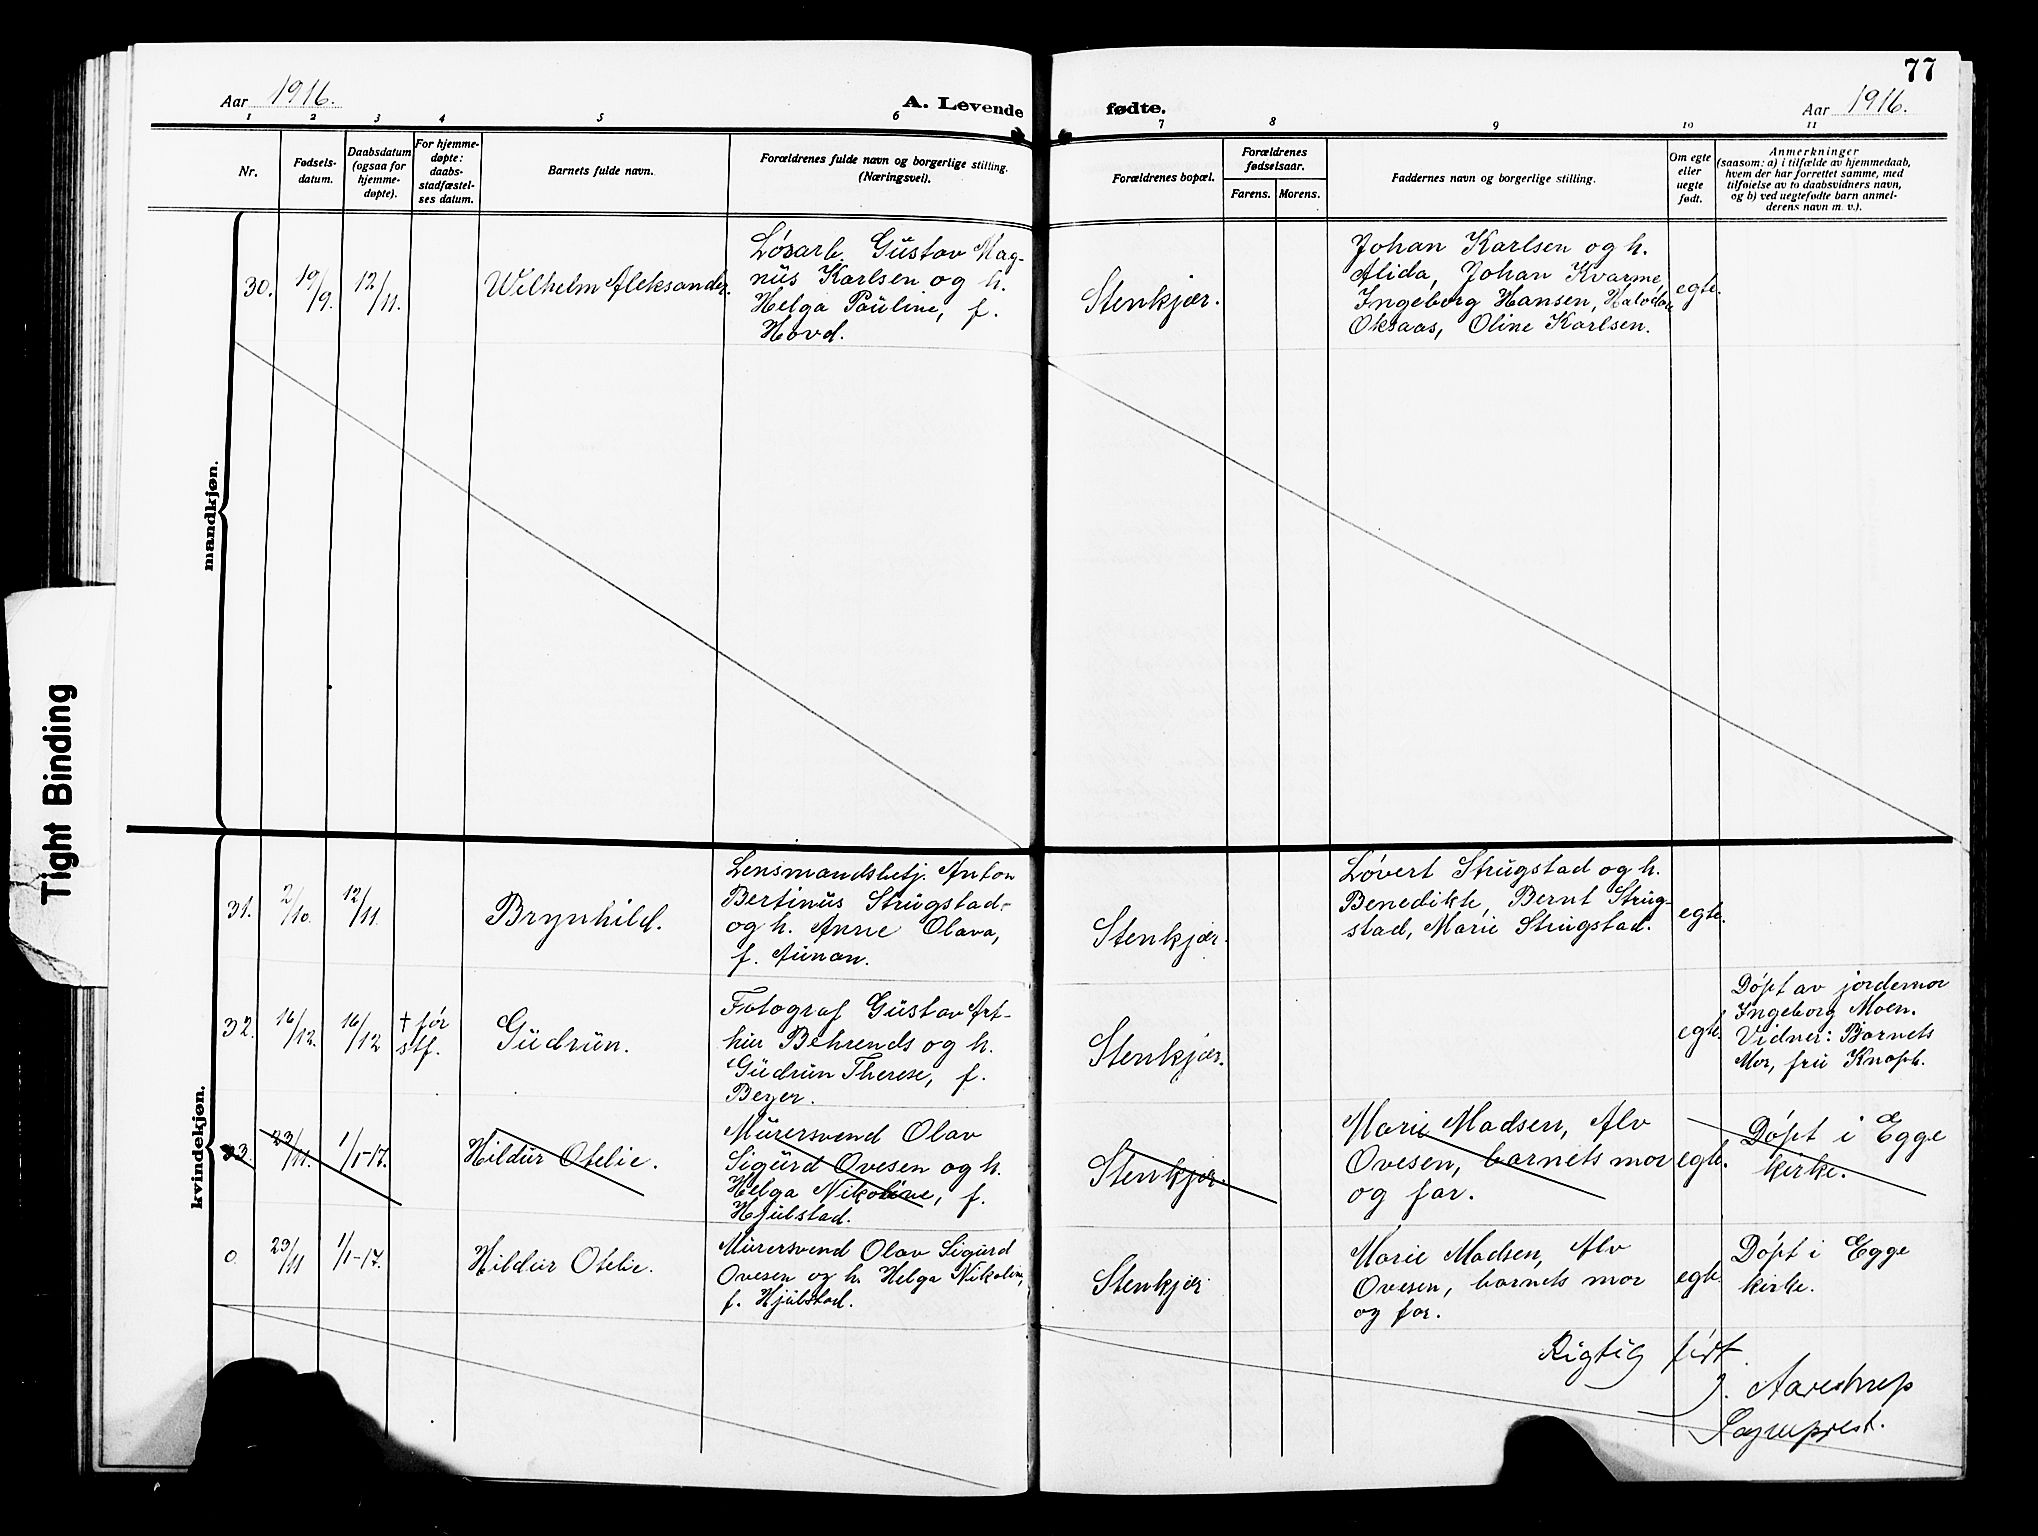 77
Aar 1916. A. Levende fødte. Aar 1916.
1 2 3 4 5 6 7 8 9 10 11
Nr.
Fødsels-
datum.
Daabsdatum
(ogsaa for
hjemme-
døpte).
For hjemme-
døpte:
daabs-
stadfæstel-
ses datum.
Barnets fulde navn.
Forældrenes fulde navn og borgerlige stilling.
(Næringsvei).
Forældrenes bopæl.
Forældrenes
fødselsaar.
Farens. Morens.
Faddernes navn og borgerlige stilling.
Om egte
eller
uegte
født.
Anmerkninger
(saasom: a) i tilfælde av hjemmedaab,
hvem der har forrettet samme, med
tilføielse av to daabsvidners navn,
og b) ved uegtefødte barn anmel-
derens navn m. v.).
mandkjøn.
30. 19/9. 12/11. Wilhelm Aleksander.
Løsarb. Gustav Mag-
nus Karlsen og h.
Helga Pauline, f.
Hovd.
Stenkjær.
Johan Karlsen og h.
Alida, Johan Kvarme,
Ingeborg Hansen, Halvdan
Oksaas, Oline Karlsen.
egte.
kvindekjøn.
31. 2/10. 12/11. Brynhild.
Lensmandsbetj. Anton
Bertinus Strugstad
og h. Anne Olava,
f. Aunan.
Stenkjær.
Løvert Strugstad og h.
Benedikte, Bernt Strug-
stad, Marie Strugstad.
egte.
32. 16/12. 16/12 † før
stf.
Gudrun.
Fotograf Gustav Art-
hur Behrends og h.
Gudrun Therese, f.
Beyer.
Stenkjær.
egte.
Døpt av jordemor
Ingeborg Moen.
Vidner: Barnets
Mor, fru Knoph.
33. 23/11. 1/1-17. Hildur Otelie.
Murersvend Olav
Sigurd Ovesen og h.
Helga Nikoline, f.
Hjulstad.
Stenkjær.
Marie Madsen, Alv
Ovesen, barnets mor
og far.
egte.
Døpt i Egge
kirke.
0. 23/11 1/1-17. Hildur Otelie.
Murersvend Olav Sigurd
Ovesen og h. Helga Nikoline,
f. Hjulstad.
Stenkjær
Marie Madsen, Alv
Ovesen, barnets mor
og far.
egte.
Døpt i Egge
kirke.
Rigtig ført
J. Aarestrup
Sogneprest.
Tight Binding